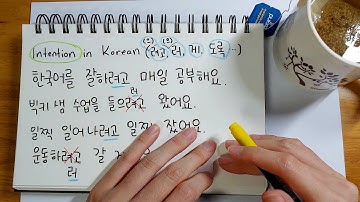 Intention in Korean ((으)려고, (으)러, 게, 도록…)
한국어를 잘하려고 매일 공부해요.
빅키 샘 수업을 들으려고 러 왔어요.
일찍 일어나려고 일찍 잤어요.
운동하려고 러 갈